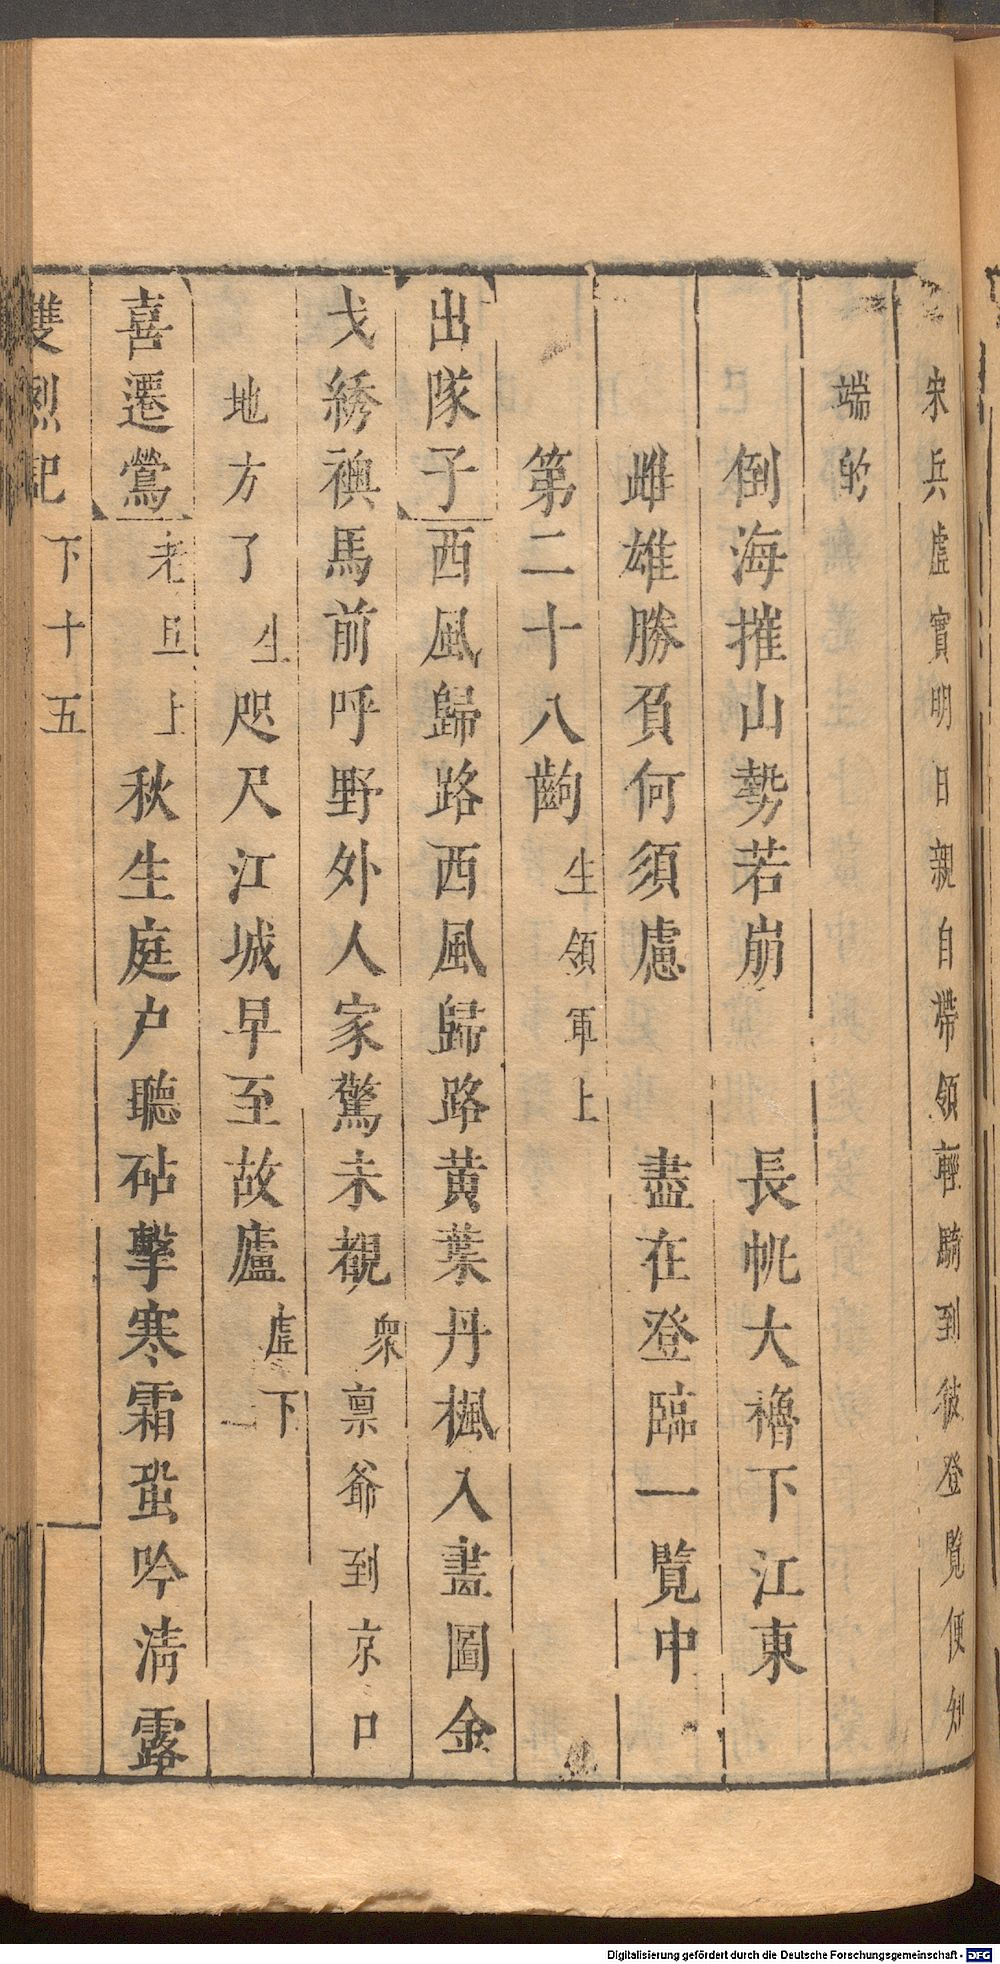 宋兵虛實明日親自帶領輕騎到彼登覽便知
端的
倒海摧山勢若崩　長帆大櫓下江東
雌雄勝負何須慮　盡在登臨一覽中
第二十八齣　生領軍上
出隊子　西風歸路西風歸路黃葉丹楓入畫圖金
戈綉襖馬前呼野外人家驚未覩　衆禀爺到京口
地方了　生　咫尺江城早至故廬　虛下
喜遷鶯　老旦上　秋生庭戶聽砧擊寒霜蛩吟清露
雙烈記　下　十五
Digitalisierung gefördert durch die Deutsche Forschungsgemeinschaft - DFG